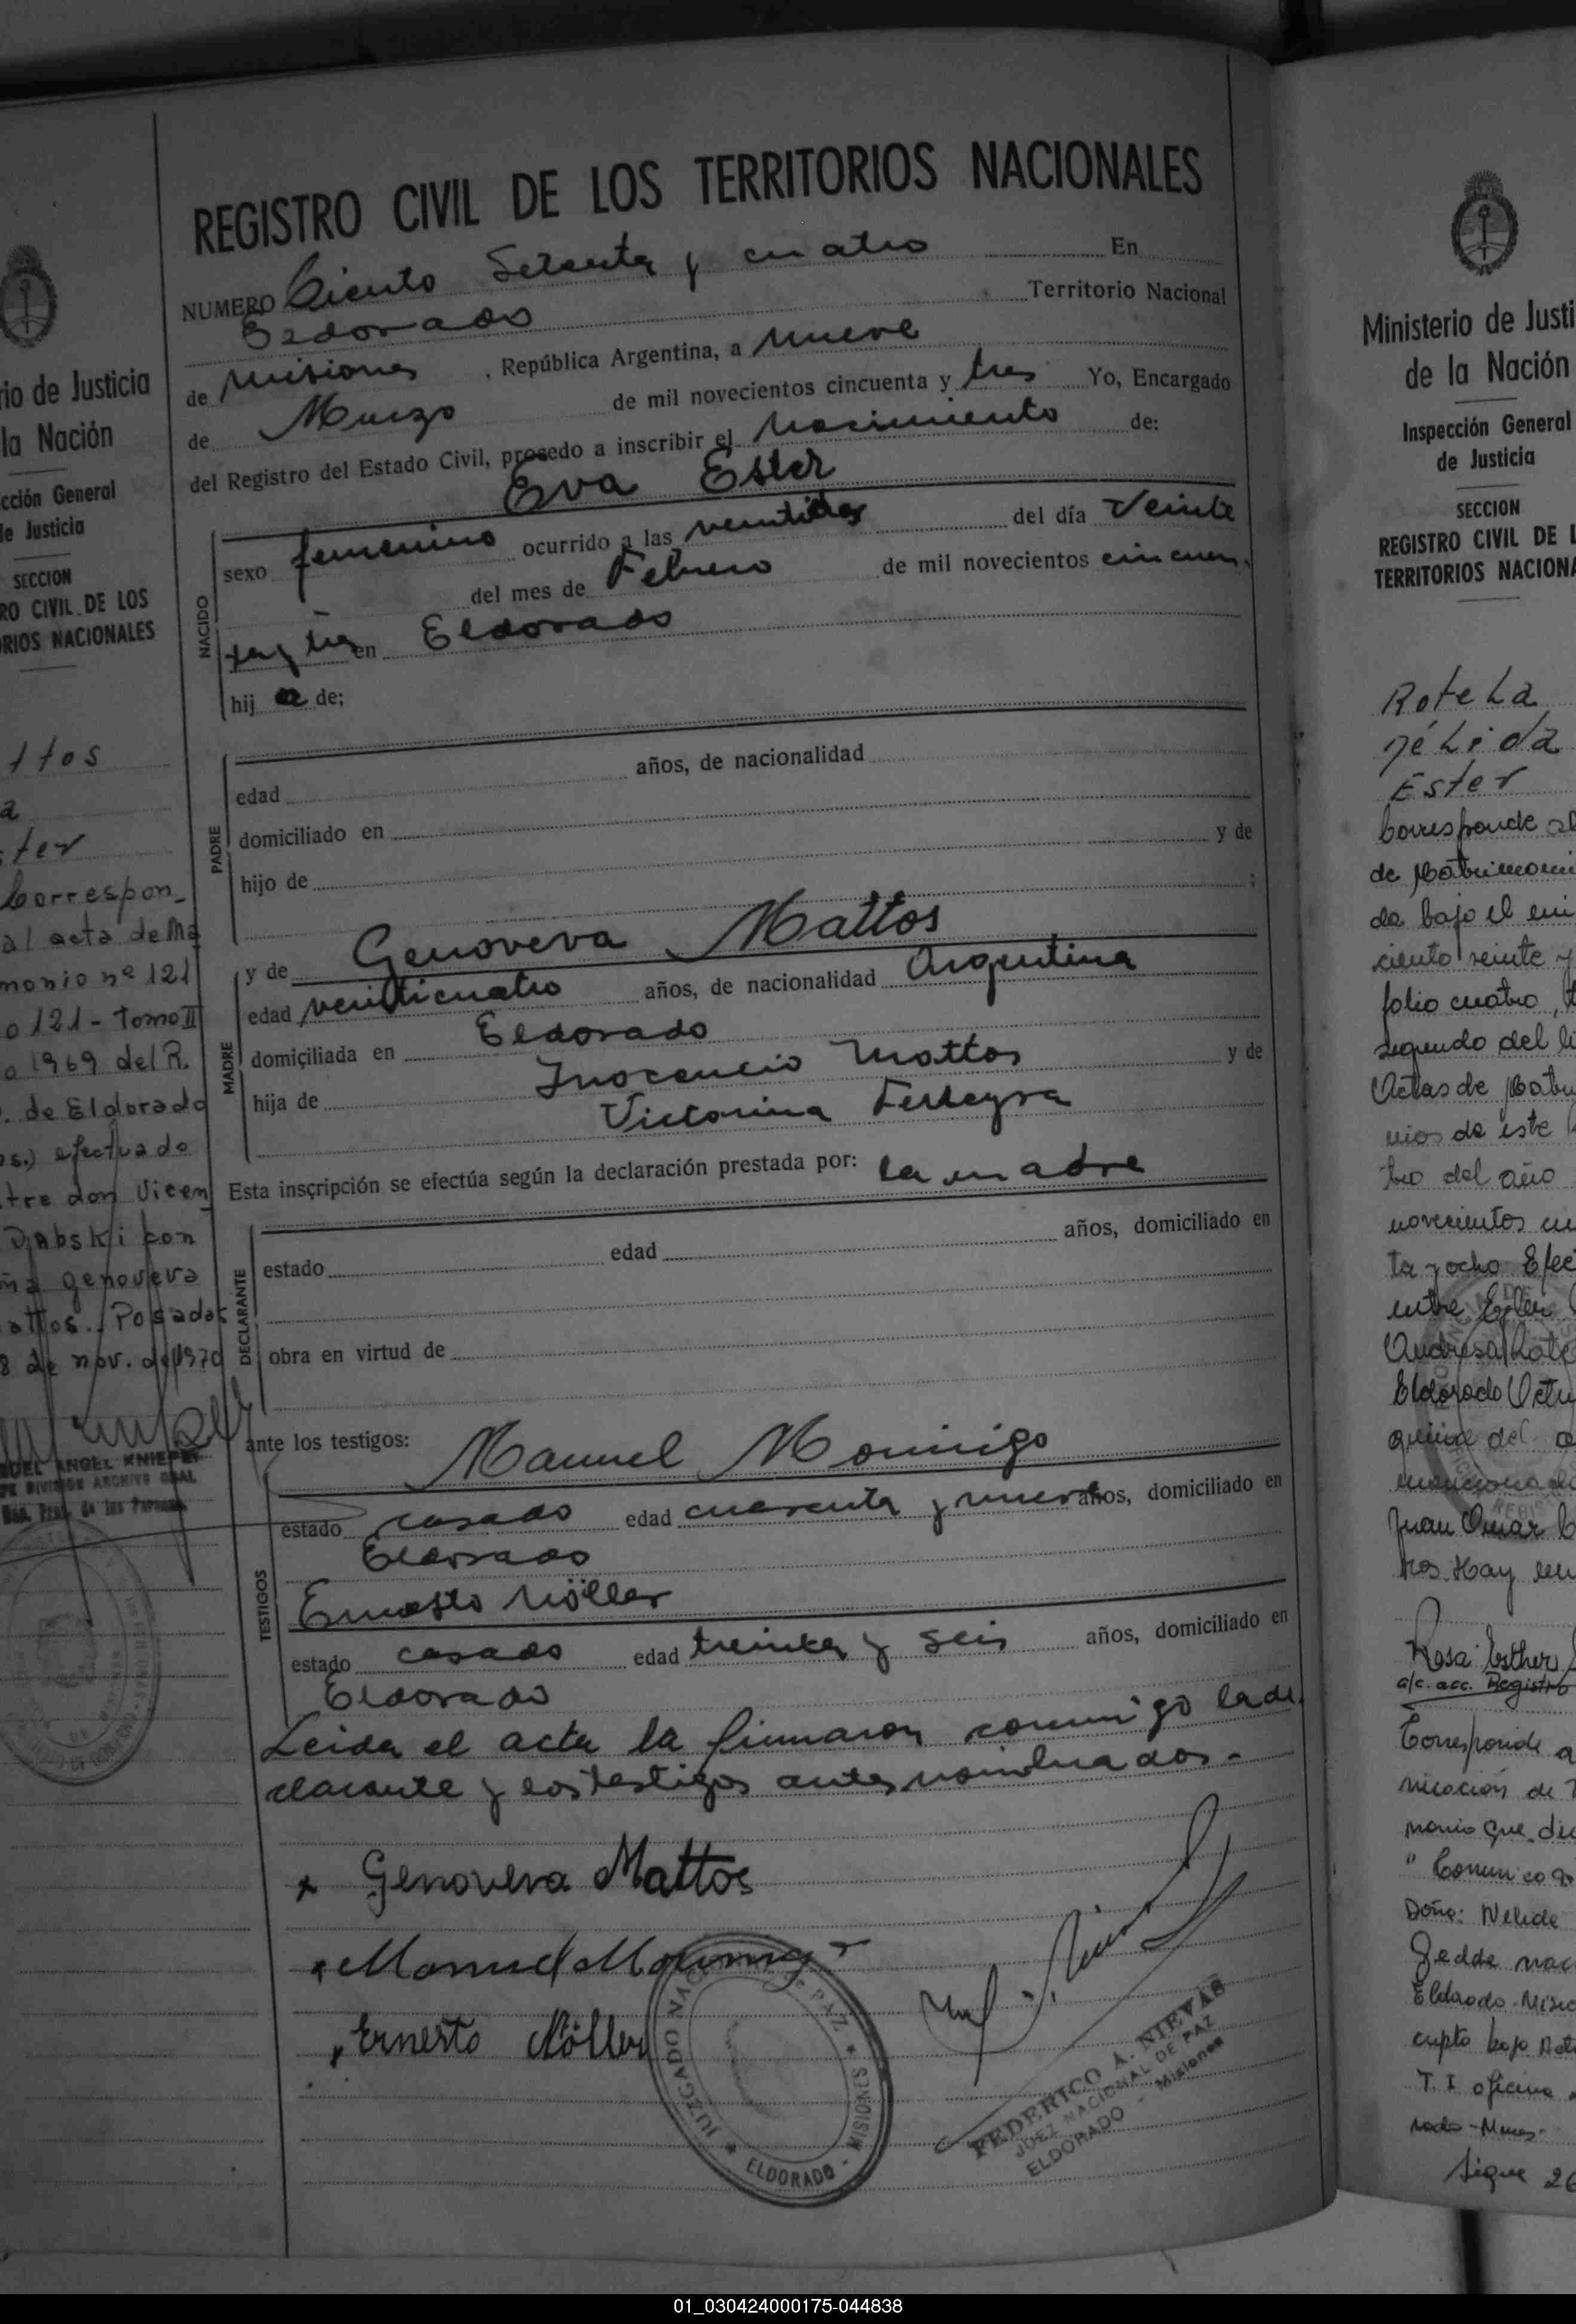 REGISTRO CIVIL DE LOS TERRITORIOS NACIONALES
NUMERO Ciento Setenta y cuatro En
Eldorado Territorio Nacional
de Misiones , República Argentina, a Nueve
de Marzo de mil novecientos cincuenta y tres Yo, Encargado
del Registro del Estado Civil, procedo a inscribir el Nacimiento de:
Eva Ester
NACIDO
sexo femenino ocurrido a las del día Veinte
del mes de Febrero de mil novecientos cincuen-
ta y tres en Eldorado
hij a de;
PADRE
edad años, de nacionalidad
domiciliado en
hijo de y de
;
MADRE
y de Genoveva Mattos
edad veinticuatro años, de nacionalidad Argentina
domiciliada en Eldorado
hija de Inocencio Mattos y de
Victorina
Esta inscripción se efectúa según la declaración prestada por: la madre
DECLARANTE
estado edad años, domiciliado en
obra en virtud de
ante los testigos: Manuel
TESTIGOS
estado casado edad cuarenta y nueve años, domiciliado en
Eldorado
Ernesto Nöller
estado casado edad treinta y seis años, domiciliado en
Eldorado
Leida el acta la firmaron conmigo la de-
clarante y los testigos antes nombrados.-
x Genoveva Mattos
Manuel
Ernesto Nöller
JUZGADO NACIONAL DE PAZ
ELDORADO - MISIONES
FEDERICO A. NIEVAS
JUEZ NACIONAL DE PAZ
ELDORADO - Misiones
rio de Justicia
la Nación
cción General
de Justicia
SECCION
RO CIVIL DE LOS
ORIOS NACIONALES
ttos
a
ster
Correspon-
al acta de Ma
monio nº 121
o 121 - tomo II
o 1969 del R.
. de Eldorado
os.) efectuado
tre don Vicen
Dabski con
ña Genoveva
attos. Posadas
8 de nov. de 1970
ANGEL KNIEPE
DIVISION ARCHIVO GRAL
Ministerio de Justi
de la Nación
Inspección General
de Justicia
SECCION
REGISTRO CIVIL DE L
TERRITORIOS NACIONA
Rotela
Nélida
Ester
Corresponde al
de Matrimoni
da bajo el
ciento veinte y
folio cuatro,
segundo del li
Actas de Matri
nios de este
bro del año
novecientos cin
ta y ocho Efec
entre
Eldorado Octu
quince del a
mencionado
Juan Omar
Rosa Esther
a/c. acc. Registro
Corresponde a
nicación de
monio que di
" Comunico
Doña: Nelida
Gedde naci
Eldorado-Misio
cripto bajo Acta
T. I oficina
rado - Mnes-
Sigue 26
01_030424000175-044838